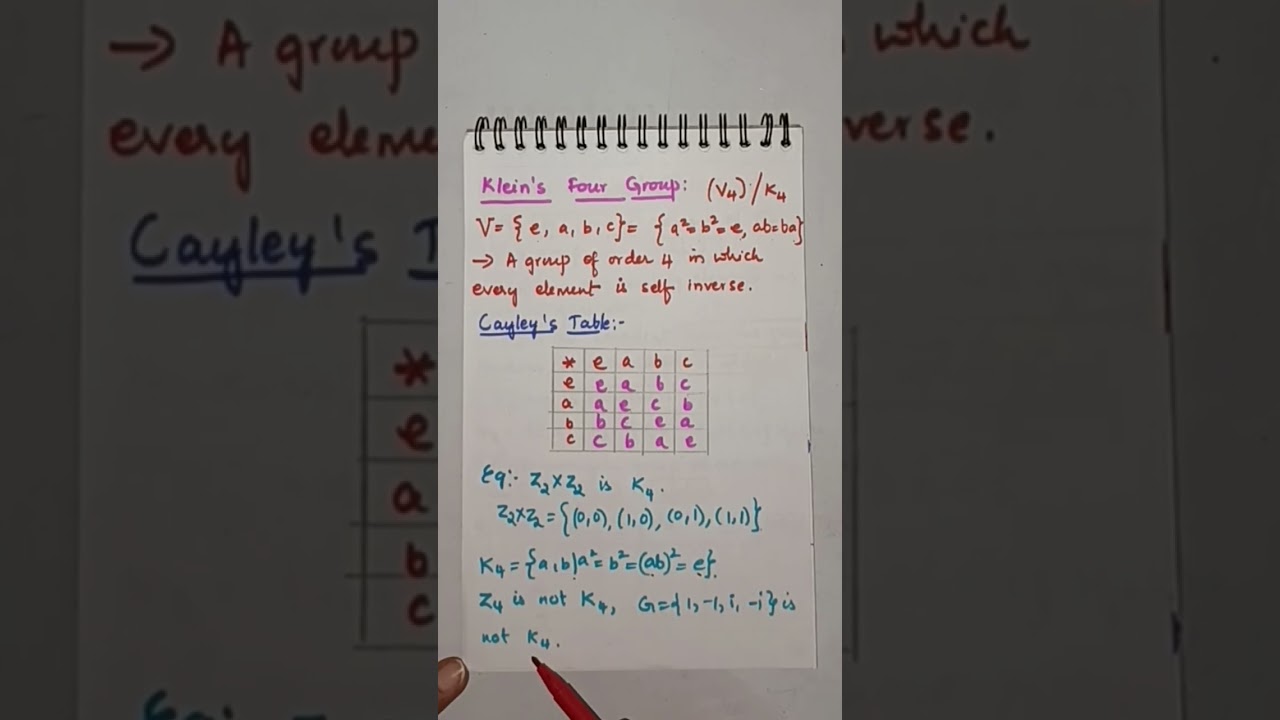 Klein's Four Group: (V₄)/K₄
V = {e, a, b, c} = {a²=b²=e, ab=ba}
→ A group of order 4 in which
every element is self inverse.
Cayley's Table:-
* e a b c
e e a b c
a a e c b
b b c e a
c c b a e
Eg:- Z₂×Z₂ is K₄.
Z₂×Z₂ = {(0,0), (1,0), (0,1), (1,1)}
K₄ = {a,b|a²=b²=(ab)²=e}
Z₄ is not K₄, G={1,-1,i,-i} is
not K₄.
→ A group
which
every eleme
verse.
Cayley's T
*
e
a
b
c